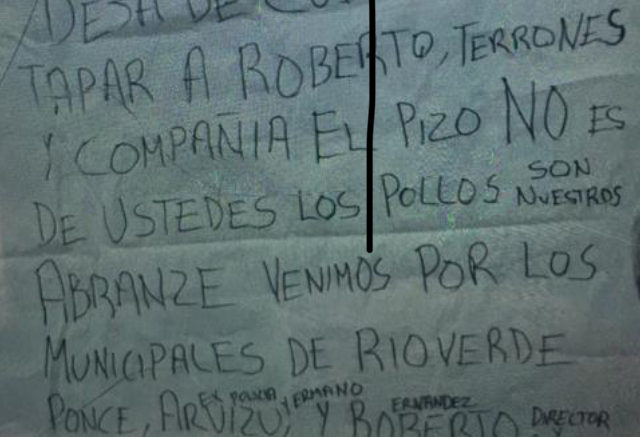 DEJA DE
TAPAR A ROBERTO, TERRONES
Y COMPAÑIA EL PIZO NO ES
DE USTEDES LOS POLLOS SON NUESTROS
ABRANZE VENIMOS POR LOS
MUNICIPALES DE RIOVERDE
EX POLICIA Y ERMANO ERNANDEZ
PONCE, ARVIZU, Y ROBERTO DIRECTOR